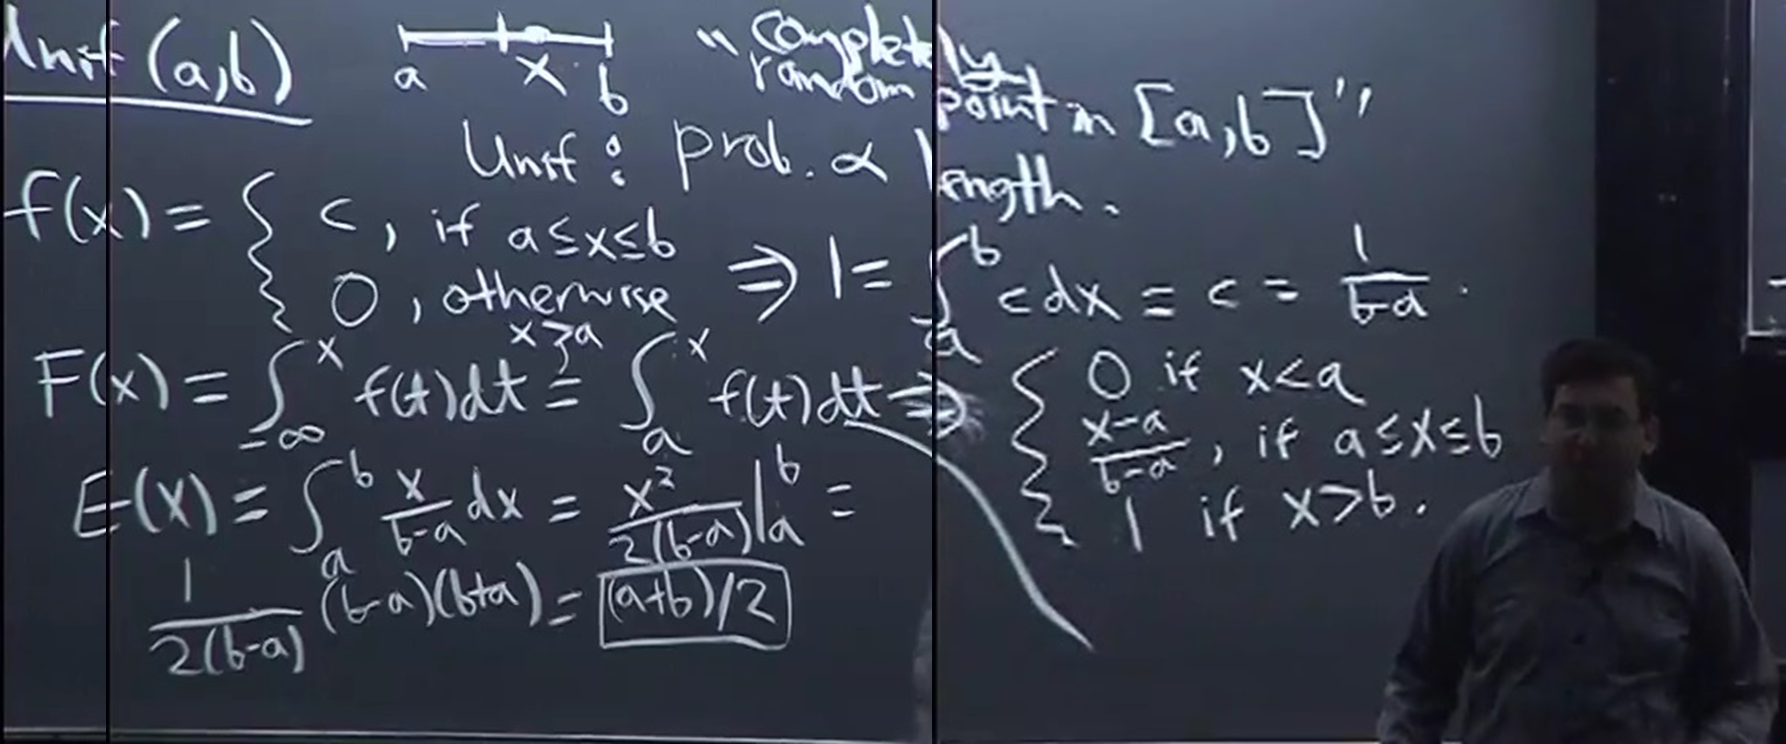 Unif (a,b) a x b "completely random point in [a,b]"
Unif : prob. ∝ length.
f(x) = { c, if a≤x≤b
0, otherwise ⇒ 1 = ∫_a^b c dx = c = 1/(b-a).
F(x) = ∫_{-∞}^x f(t)dt = (x≥a) ∫_a^x f(t)dt ⇒ { 0 if x<a
(x-a)/(b-a), if a≤x≤b
1 if x>b.
E(x) = ∫_a^b x/(b-a) dx = x²/(2(b-a)) |_a^b =
1/(2(b-a)) (b-a)(b+a) = (a+b)/2